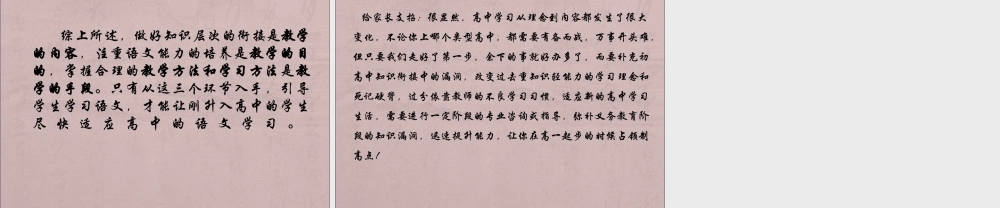 综上所述，做好知识层次的衔接是教学
的内容，注重语文能力的培养是教学的目
的，掌握合理的教学方法和学习方法是教
学的手段。只有从这三个环节入手，引导
学生学习语文，才能让刚升入高中的学生
尽快适应高中的语文学习。
给家长支招：很显然，高中学习从理念到内容都发生了很大
变化，不论你上哪个类型高中，都需要有备而战，万事开头难，
但只要我们走好了第一步，余下的事就好办多了，而要补充初
高中知识衔接中的漏洞，改变过去重知识轻能力的学习理念和
死记硬背，过分依靠教师的不良学习习惯，适应新的高中学习
生活，需要进行一定阶段的专业咨询或指导，弥补义务教育阶
段的知识漏洞，迅速提升能力，让你在高一起步的时候占领制
高点！